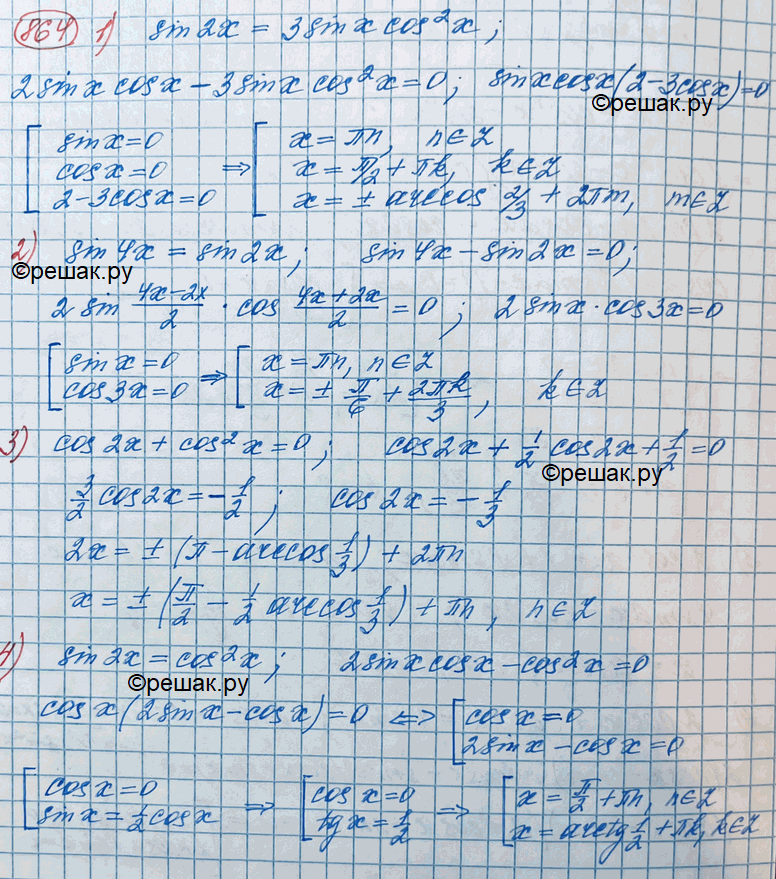 864 1) sin 2x = 3 sin x cos²x;
2 sin x cos x − 3 sin x cos²x = 0; sin x cos x (2 − 3 cos x) = 0
©решак.ру
[ sin x = 0 [ x = πn, n ∈ Z
cos x = 0 ⇒ x = π/2 + πk, k ∈ Z
2 − 3 cos x = 0 x = ± arccos 2/3 + 2πm, m ∈ Z
2) sin 4x = sin 2x; sin 4x − sin 2x = 0;
©решак.ру
2 sin (4x − 2x)/2 · cos (4x + 2x)/2 = 0; 2 sin x · cos 3x = 0
[ sin x = 0 ⇒ [ x = πn, n ∈ Z
cos 3x = 0 x = ± π/6 + 2πk/3, k ∈ Z
3) cos 2x + cos²x = 0; cos 2x + 1/2 cos 2x + 1/2 = 0
©решак.ру
3/2 cos 2x = − 1/2; cos 2x = − 1/3
2x = ± (π − arccos 1/3) + 2πn
x = ± (π/2 − 1/2 arccos 1/3) + πn, n ∈ Z
4) sin 2x = cos²x; 2 sin x cos x − cos²x = 0
©решак.ру
cos x (2 sin x − cos x) = 0 ⇔ [ cos x = 0
2 sin x − cos x = 0
[ cos x = 0 ⇒ [ cos x = 0 ⇒ [ x = π/2 + πn, n ∈ Z
sin x = 1/2 cos x tg x = 1/2 x = arctg 1/2 + πk, k ∈ Z